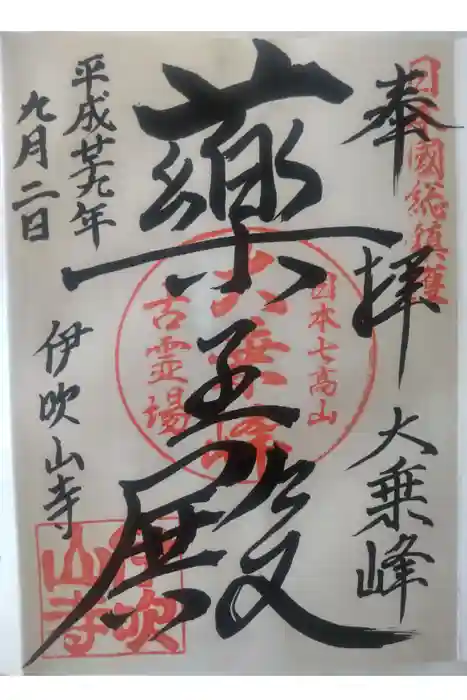 日本国総鎮護
奉拝
大乗峰
日本七高山
大乗峰
古霊場
薬王殿
平成廿九年
九月二日
伊吹山寺
伊吹
山寺